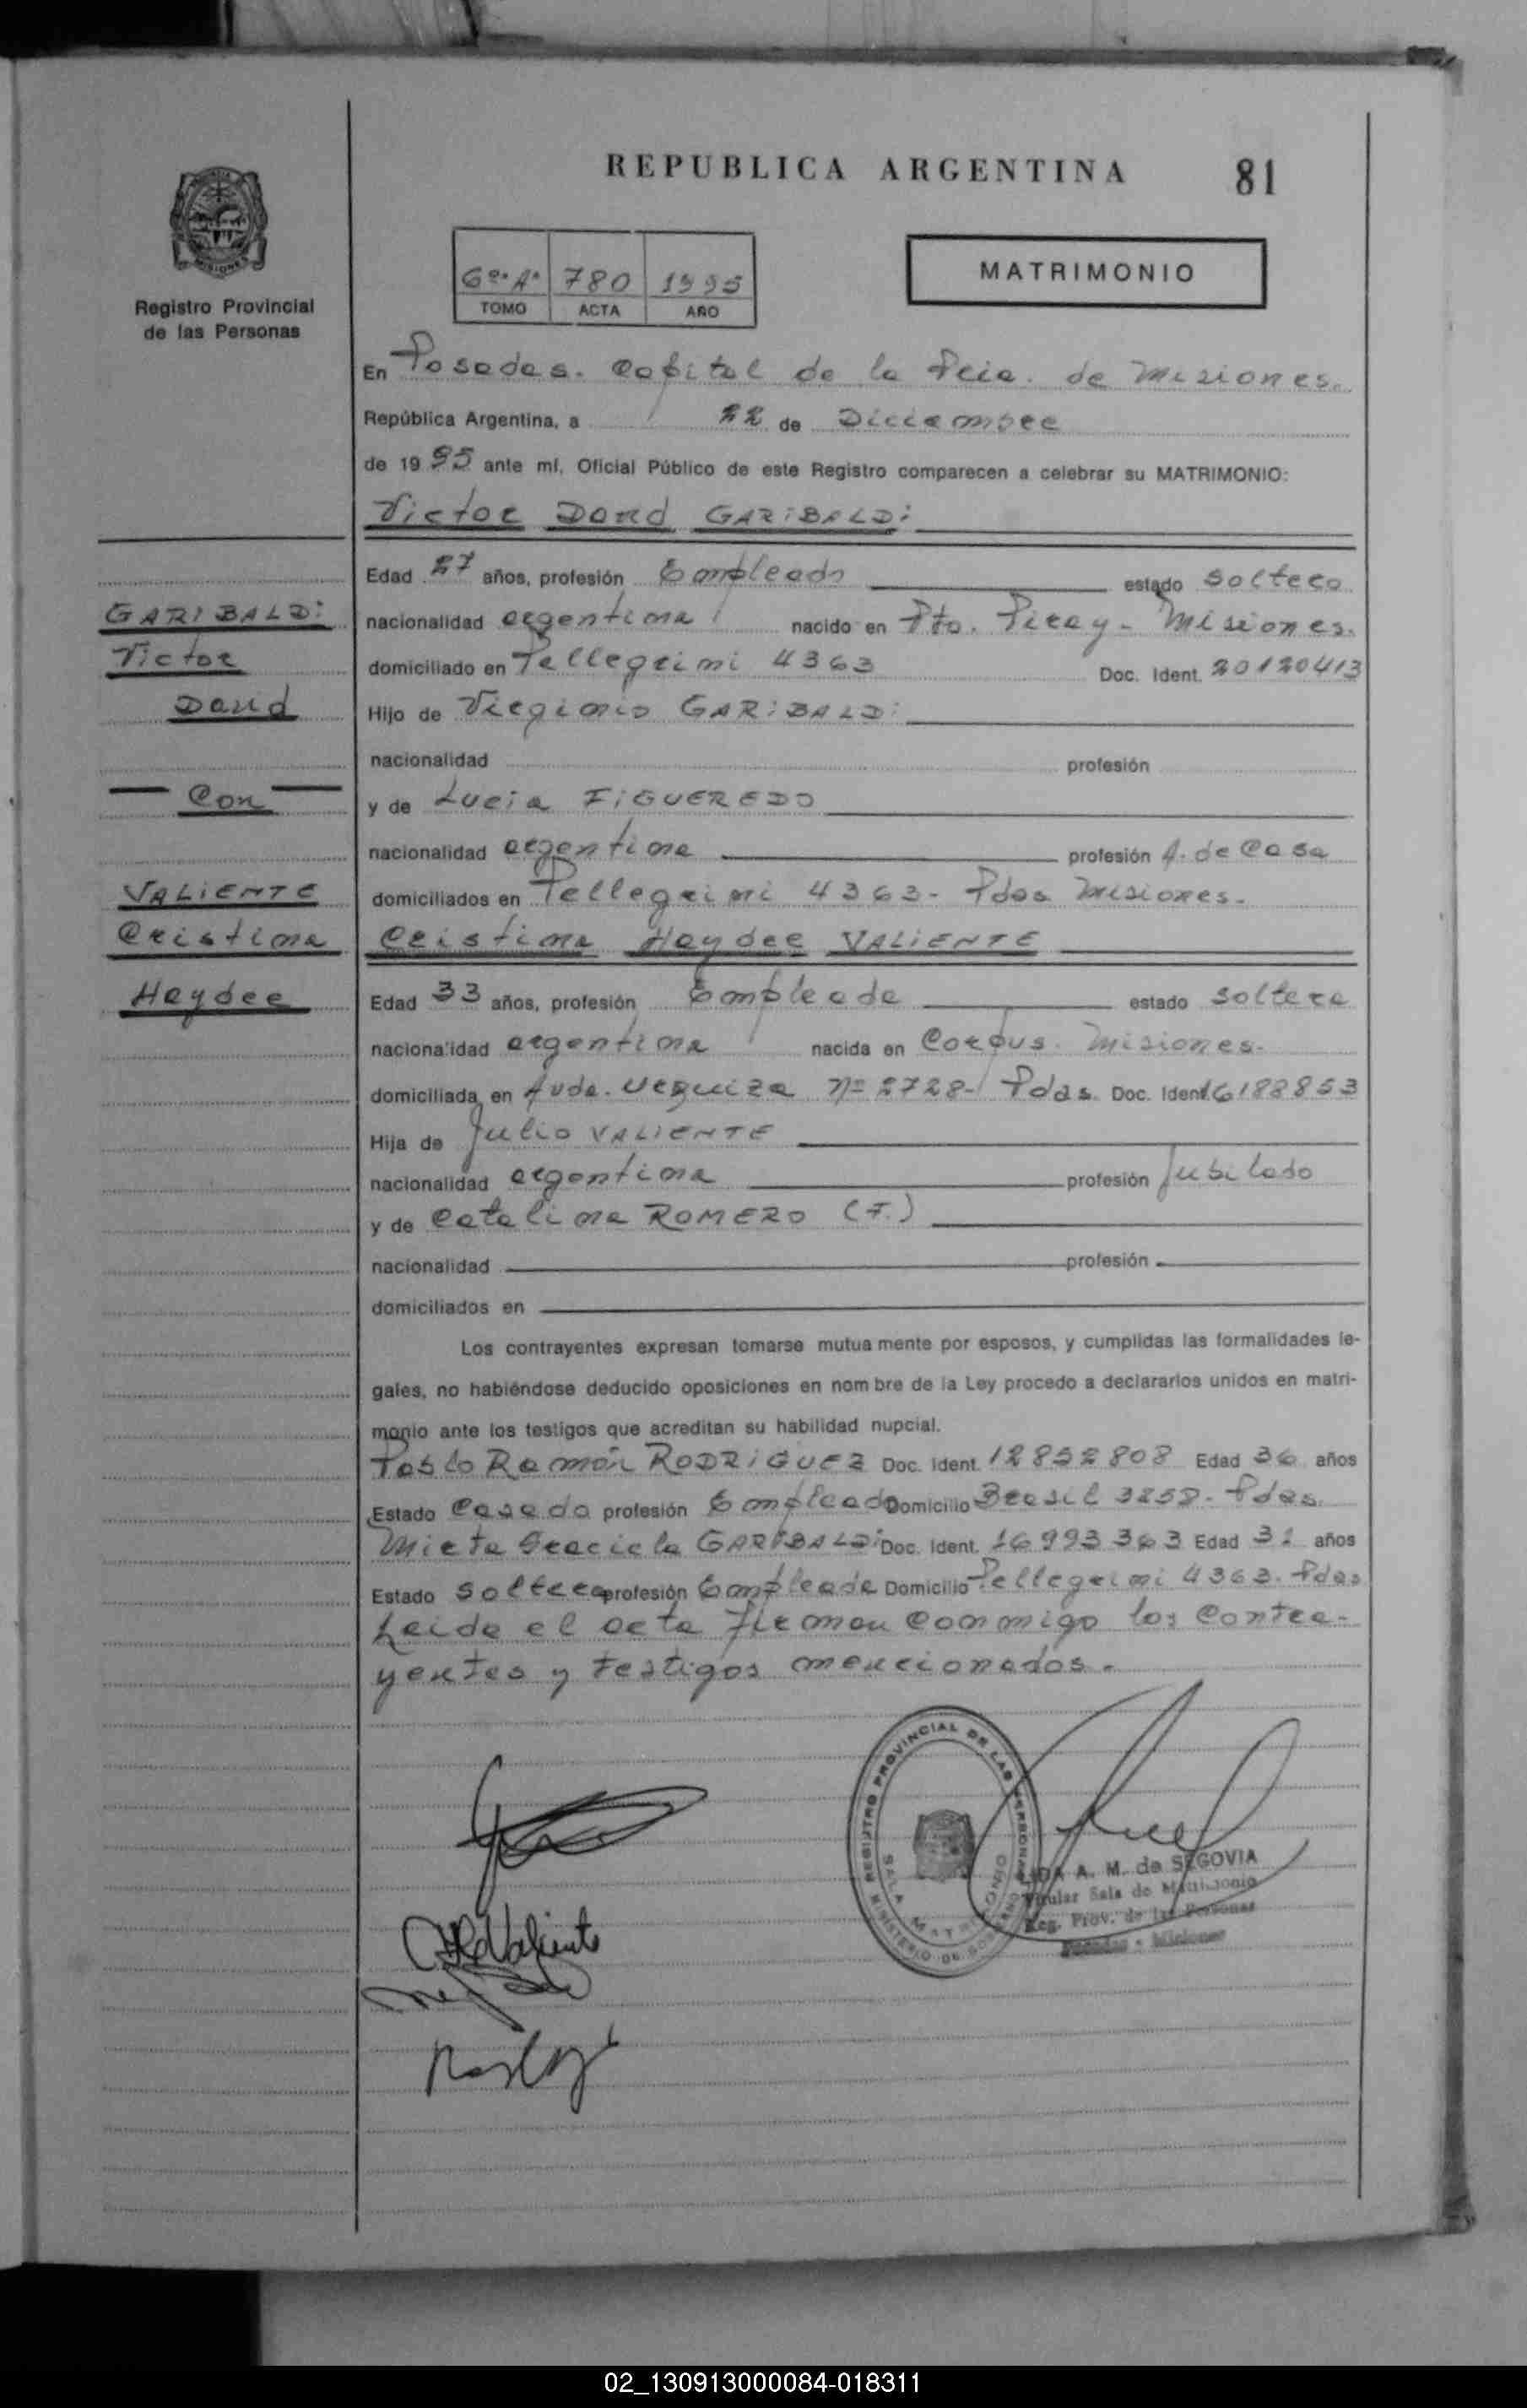 REPUBLICA ARGENTINA 81
MISIONES
Registro Provincial
de las Personas
6º. A° 780 1995
TOMO ACTA AÑO
MATRIMONIO
En Posadas. Capital de la Pcia. de Misiones.
República Argentina, a 22 de Diciembre
de 1995 ante mí, Oficial Público de este Registro comparecen a celebrar su MATRIMONIO:
Victor David GARIBALDI
Edad 27 años, profesión Empleado estado soltero
GARIBALDI nacionalidad argentina nacido en Pto. Piray - Misiones.
Victor domiciliado en Pellegrini 4363 Doc. Ident. 20120413
David Hijo de Virginio GARIBALDI
nacionalidad profesión
Con y de Lucia FIGUEREDO
nacionalidad argentina profesión A. de Casa
VALIENTE domiciliados en Pellegrini 4363- Pdas Misiones.
Cristina Cristina Haydee VALIENTE
Haydee Edad 33 años, profesión Empleada estado soltera
nacionalidad argentina nacida en Corpus. Misiones.
domiciliada en Avda. Urquiza Nº 2728- Pdas. Doc. Ident. 16188853
Hija de Julio VALIENTE
nacionalidad argentina profesión Jubilado
y de Catalina ROMERO (F.)
nacionalidad profesión
domiciliados en
Los contrayentes expresan tomarse mutua mente por esposos, y cumplidas las formalidades le-
gales, no habiéndose deducido oposiciones en nom bre de la Ley procedo a declararlos unidos en matri-
monio ante los testigos que acreditan su habilidad nupcial.
Pablo Ramón RODRIGUEZ Doc. Ident. 12852808 Edad 36 años
Estado Casado profesión Empleado Domicilio Brasil 3258- Pdas.
Mirta Graciela GARIBALDI Doc. Ident. 16993363 Edad 31 años
Estado soltera profesión Empleada Domicilio Pellegrini 4363. Pdas
Leida el acta firman conmigo los contra-
yentes y testigos mencionados.
REGISTRO PROVINCIAL DE LAS PERSONAS
SALA MATRIMONIO
MINISTERIO DE GOBIERNO
A. M. de SEGOVIA
Titular Sala de Matrimonio
Reg. Prov. de las Personas
Posadas - Misiones
Valiente
02_130913000084-018311